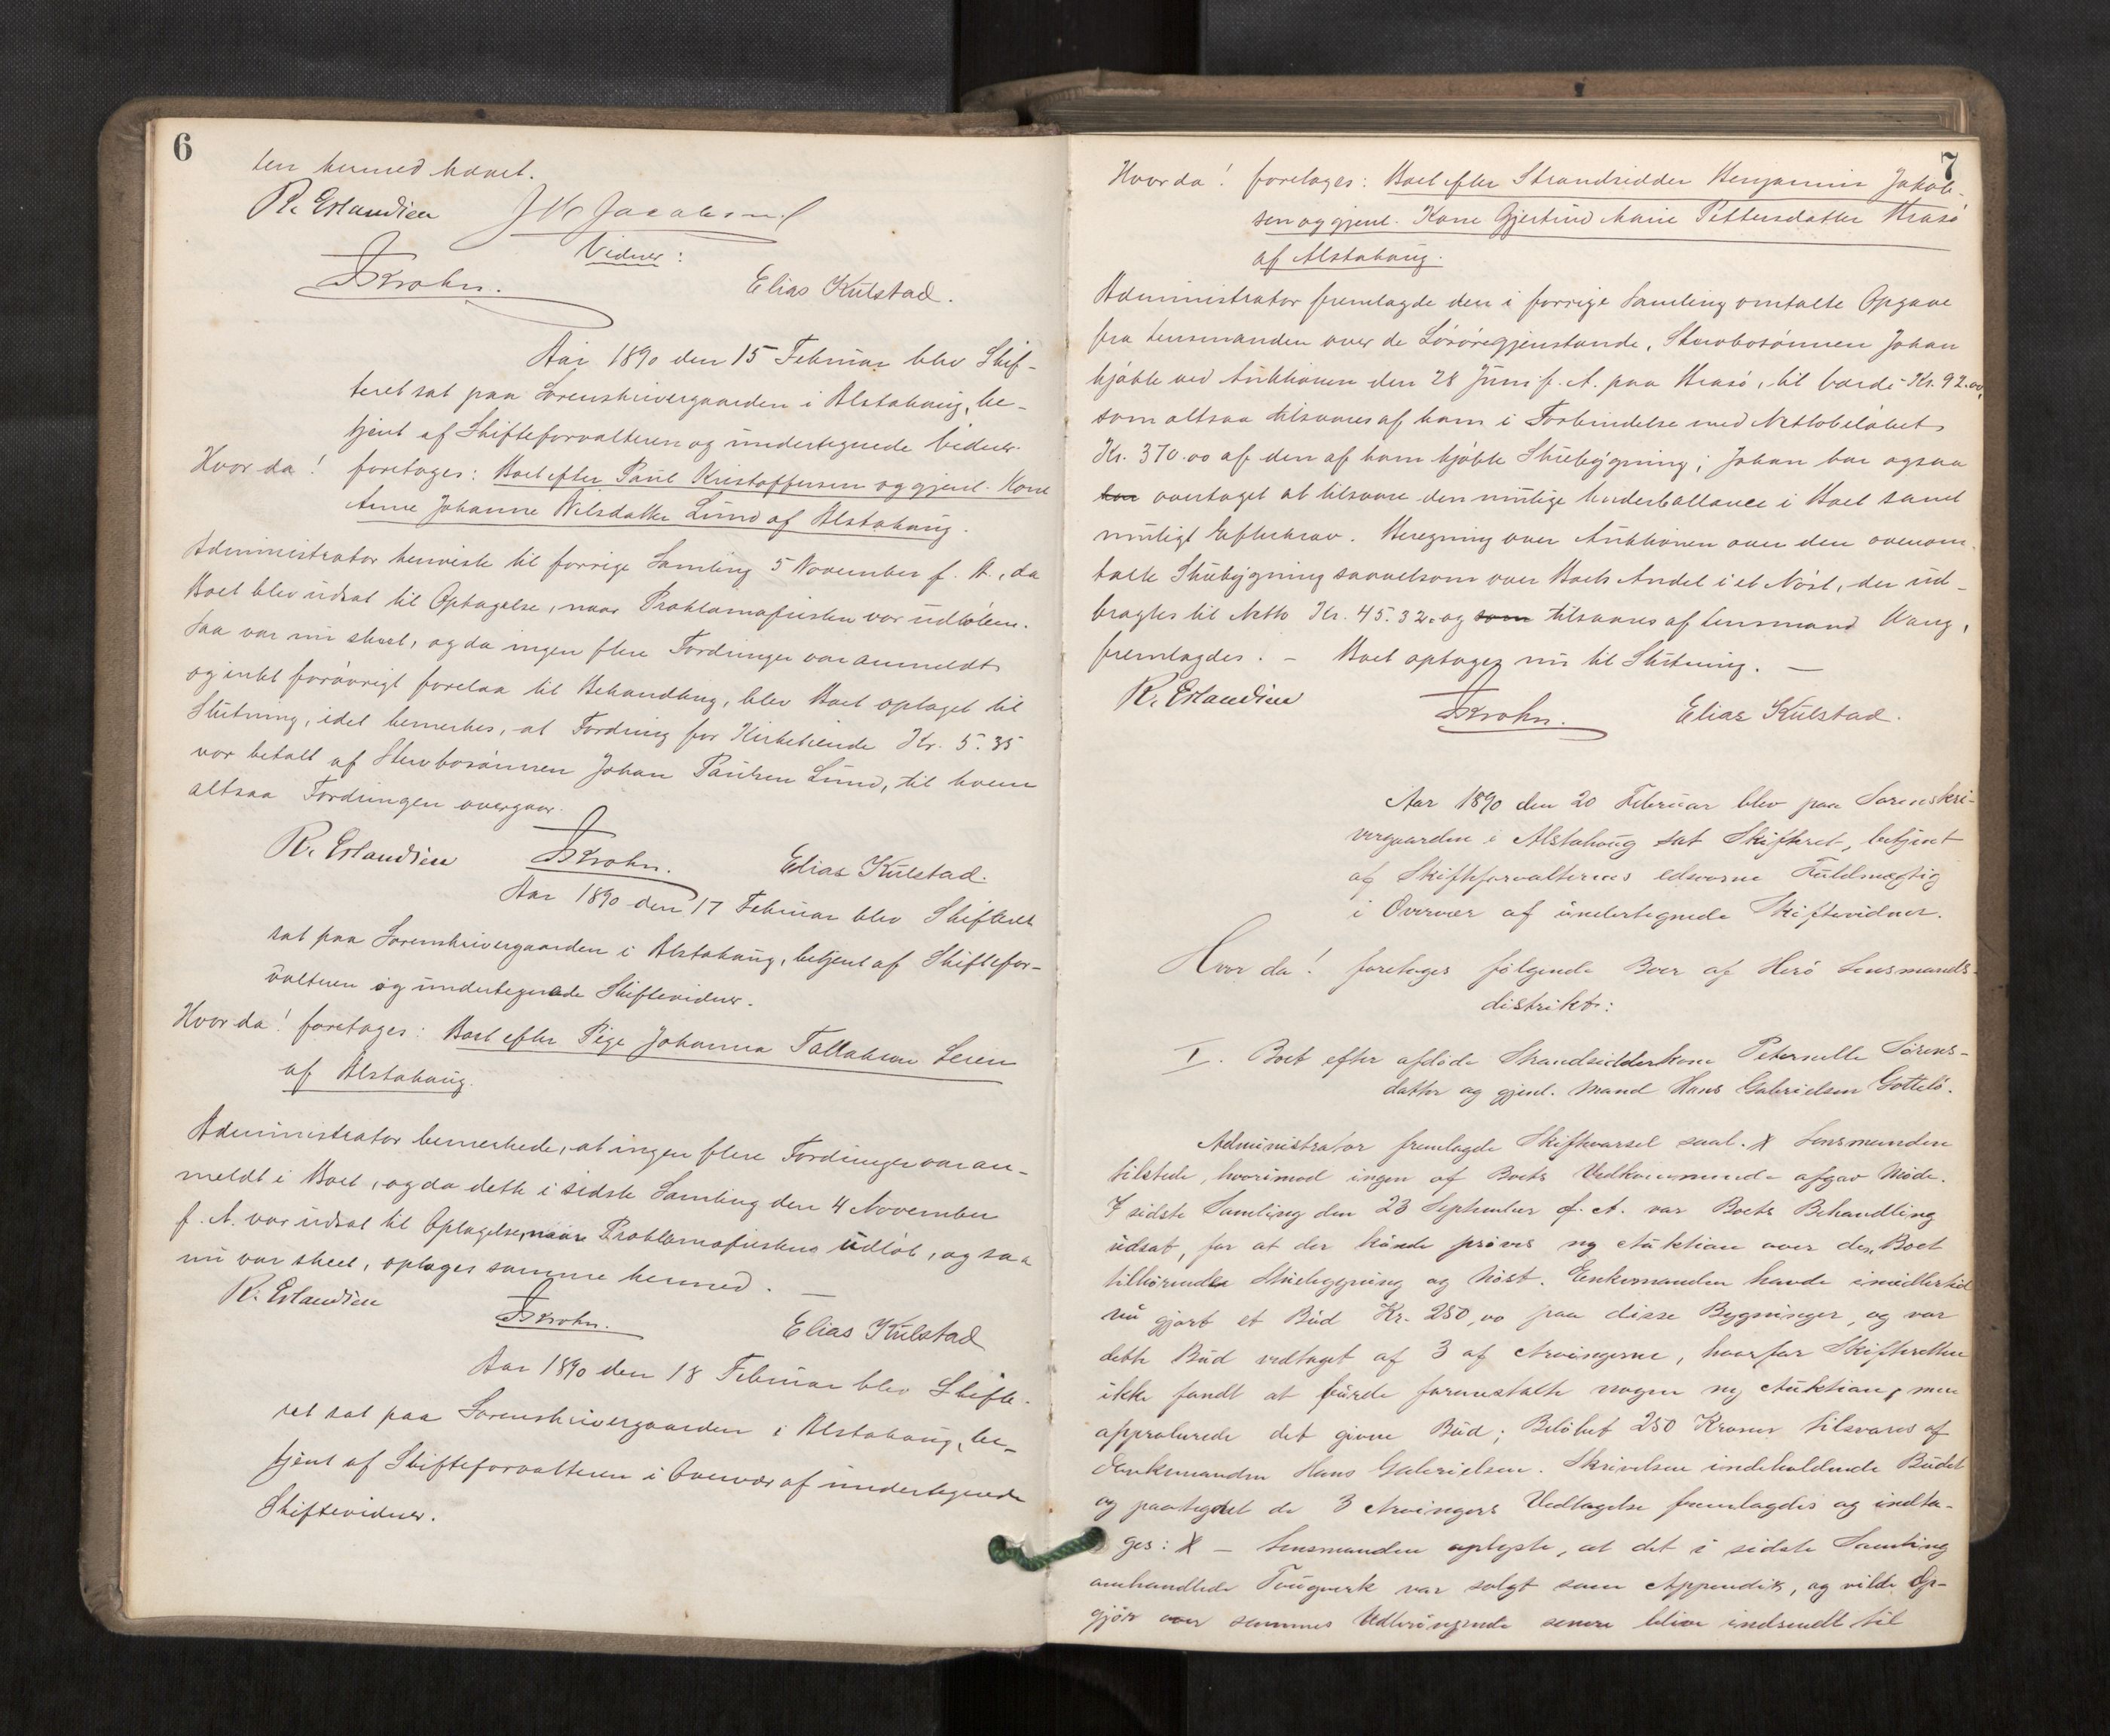 6
ten hermed hævet.
R. Erlandsen J M Jacobsen
Vidner:
Krohn. Elias Kulstad.
Aar 1890 den 15 Februar blev Skif-
teret sat paa Sorenskrivergaarden i Alstahaug, be-
tjent af Skifteforvalteren og undertegnede Vidner.
Hvor da! foretoges: Boet efter Paul Kristoffersen og gjenl. Kone
Anne Johanne Nilsdatter Lund af Alstahaug.
Administrator henviste til forrige Samling 5 November f. A., da
Boet blev udsat til Optagelse, naar Proklamafristen var udløben.
Saa var nu skeet, og da ingen flere Fordringer var anmeldt
og intet forøvrigt forelaa til Behandling, blev Boet optaget til
Slutning, idet bemerkes, at Fordring for Kirketiende Kr. 5.35
var betalt af Stervbosønnen Johan Paulsen Lund, til hvem
altsaa Fordringen overgaar.
R. Erlandsen Krohn. Elias Kulstad.
Aar 1890 den 17 Februar blev Skifteret
sat paa Sorenskrivergaarden i Alstahaug, betjent af Skiftefor-
valteren og undertegnede Skiftevidner.
Hvor da! foretoges: Boet efter Pige Johanna Tollaksen Leien
af Alstahaug.
Administrator bemerkede, at ingen flere Fordringer var an-
meldt i Boet, og da dette i sidste Samling den 4 November
f. A. var udsat til Optagelse, naar Proklamafristen udløb, og saa
nu var skeet, optoges samme hermed. —
R. Erlandsen Krohn. Elias Kulstad
Aar 1890 den 18 Februar blev Skifte-
ret sat paa Sorenskrivergaarden i Alstahaug, be-
tjent af Skifteforvalteren i Overvær af undertegnede
Skiftevidner.
7
Hvor da! foretoges: Boet efter Strandsidder Benjamin Jakob-
sen og gjenl. Kone Gjertrud Marie Pettersdatter Brasø
af Alstahaug.
Administrator fremlagde den i forrige Samling omtalte Opgave
fra Lensmanden over de Løsøregjenstande, Stervbosønnen Johan
kjøbte ved Auktionen den 28 Juni f. A. paa Brasø, til Værdi Kr. 92.00,
som altsaa tilsvares af ham i Forbindelse med Nettobeløbet
Kr. 370.00 af den af ham kjøbte Stuebygning; Johan har ogsaa
har overtaget at tilsvare den mulige Underballance i Boet samt
muligt Efterkrav. Beregning over Auktionen over den ovenom-
talte Stuebygning saavelsom over Boets Andel i et Nøst, der ud-
bragtes til Netto Kr. 45.32. og som tilsvares af Lensmand Vang,
fremlagdes. — Boet optoges nu til Slutning. —
R. Erlandsen Krohn. Elias Kulstad.
Aar 1890 den 20 Februar blev paa Sorenskri-
vergaarden i Alstahaug sat Skifteret, betjent
af Skifteforvalterens edsvorne Fuldmægtig
i Overvær af undertegnede Skiftevidner.
Hvor da! foretoges følgende Boer af Herø Lensmands-
distrikt:
I. Boet efter afdøde Strandsidderkone Peternelle Sørens-
datter og gjenl. Mand Hans Gabrielsen Gottelø.
Administrator fremlagde Skiftevarsel saal. X Lensmanden
tilstede, hvorimod ingen af Boets Vedkommende afgav Møde.
I sidste Samling den 23 September f. A. var Boets Behandling
udsat, for at der kunde prøves ny Auktion over den Boet
tilhørende Stuebygning og Nøst. Enkemanden havde imidlertid
nu gjort et Bud Kr. 250,00 paa disse Bygninger, og var
dette Bud vedtaget af 3 af Arvingerne, hvorfor Skifteretten
ikke fandt at burde foranstalte nogen ny Auktion, men
approberede det givne Bud; Beløbet 250 Kroner tilsvares af
Enkemanden Hans Gabrielsen. Skrivelsen indeholdende Budet
og paategnet de 3 Arvingers Vedtagelse fremlagdes og indta-
ges: X — Lensmanden oplyste, at det i sidste Samling
omhandlede Tougverk var solgt som Appendix, og vilde Op-
gjør over sammes Udbringende senere blive indsendt til